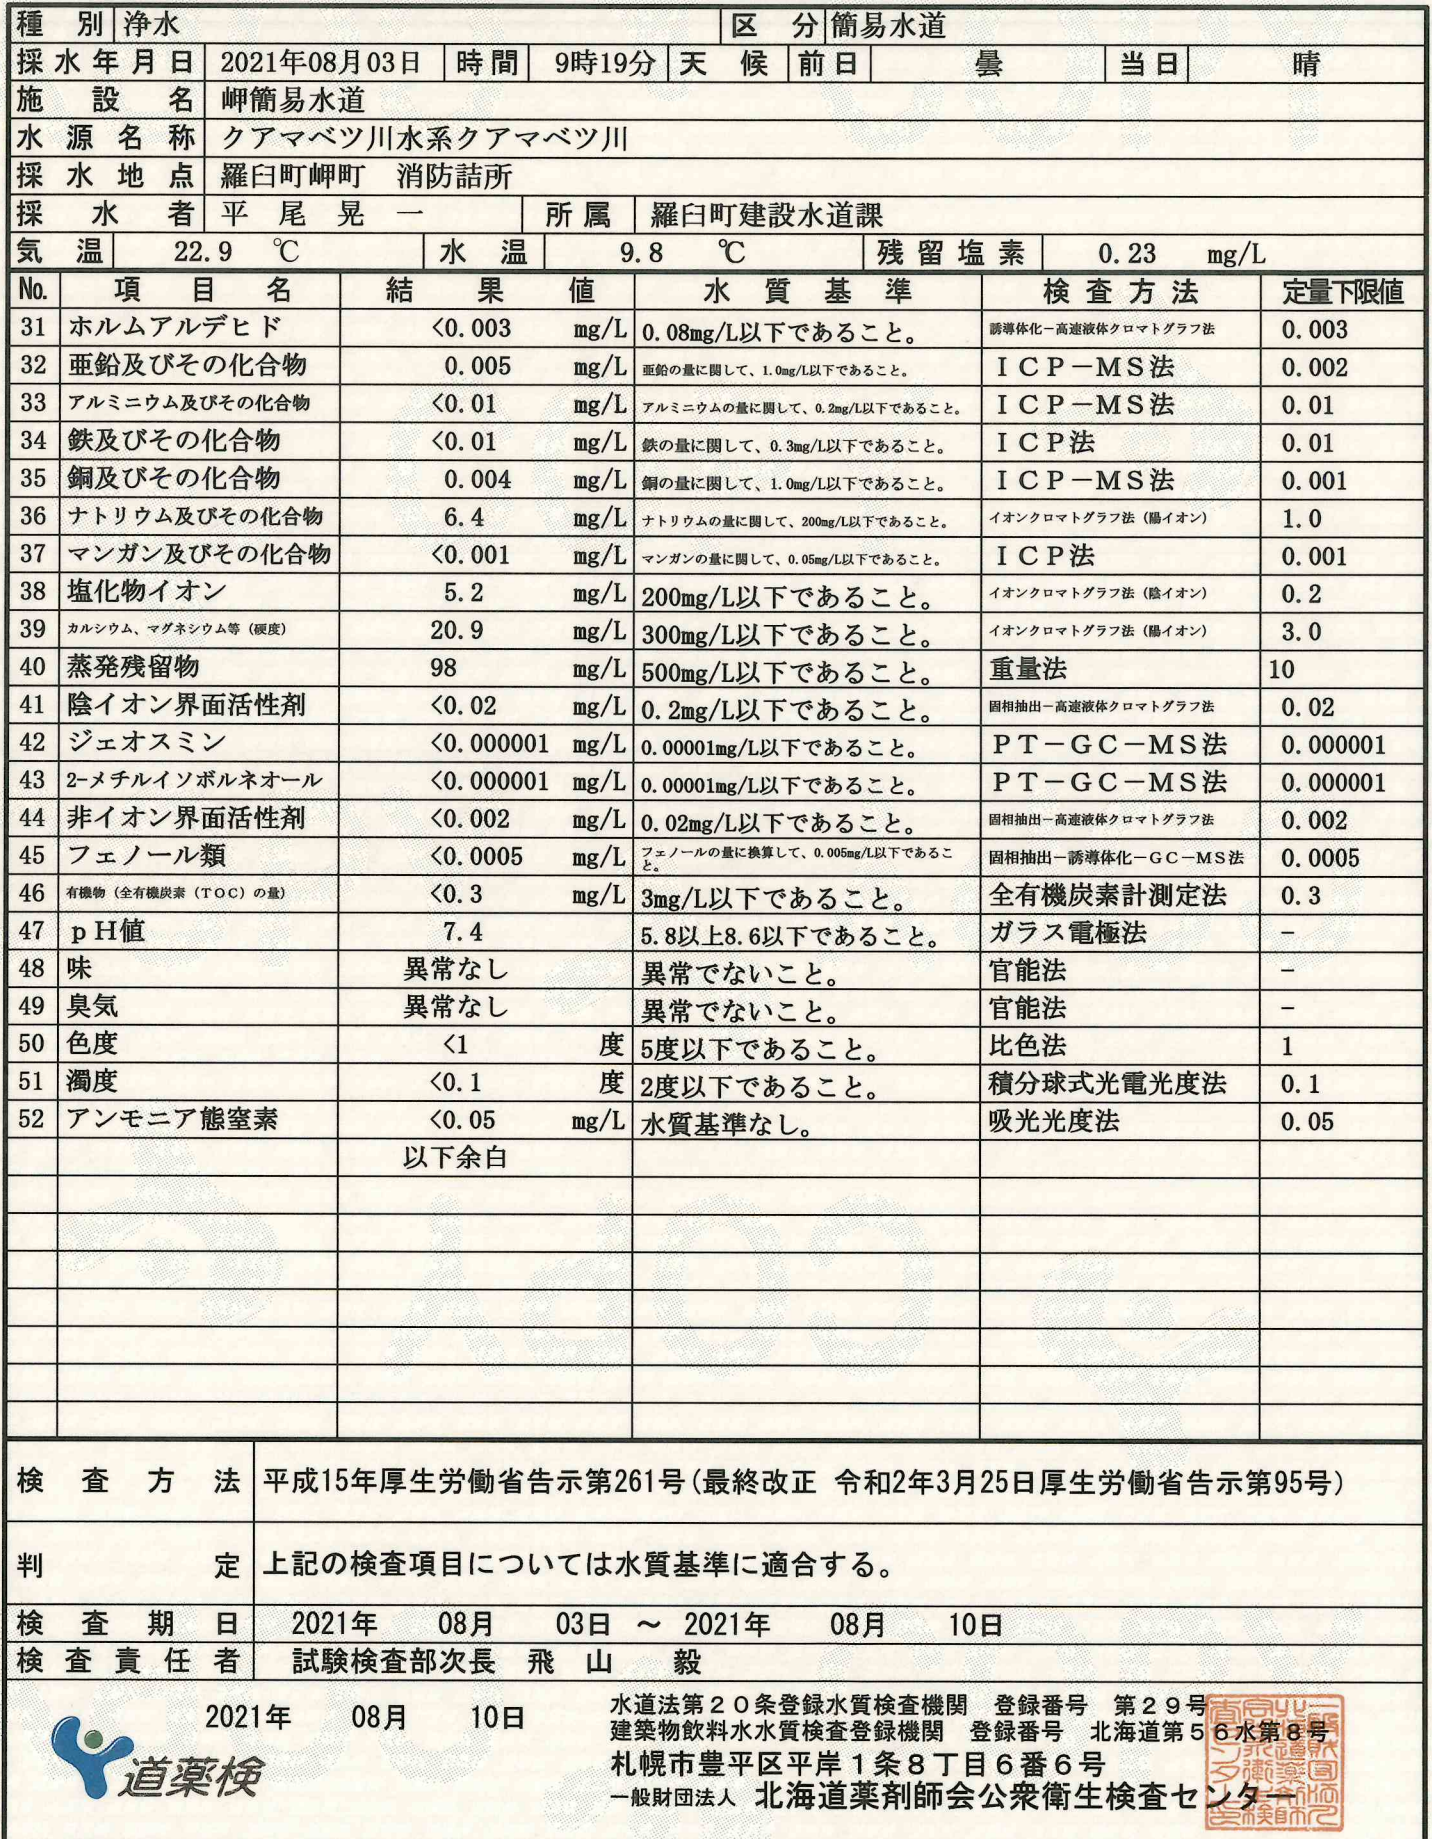 種別 浄水 区分 簡易水道
採水年月日 2021年08月03日 時間 9時19分 天候 前日 曇 当日 晴
施設名 岬簡易水道
水源名称 クアマベツ川水系クアマベツ川
採水地点 羅臼町岬町 消防詰所
採水者 平尾晃一 所属 羅臼町建設水道課
気温 22.9 ℃ 水温 9.8 ℃ 残留塩素 0.23 mg/L
No. 項目名 結果値 水質基準 検査方法 定量下限値
31 ホルムアルデヒド <0.003 mg/L 0.08mg/L以下であること。 誘導体化－高速液体クロマトグラフ法 0.003
32 亜鉛及びその化合物 0.005 mg/L 亜鉛の量に関して、1.0mg/L以下であること。 ＩＣＰ－ＭＳ法 0.002
33 アルミニウム及びその化合物 <0.01 mg/L アルミニウムの量に関して、0.2mg/L以下であること。 ＩＣＰ－ＭＳ法 0.01
34 鉄及びその化合物 <0.01 mg/L 鉄の量に関して、0.3mg/L以下であること。 ＩＣＰ法 0.01
35 銅及びその化合物 0.004 mg/L 銅の量に関して、1.0mg/L以下であること。 ＩＣＰ－ＭＳ法 0.001
36 ナトリウム及びその化合物 6.4 mg/L ナトリウムの量に関して、200mg/L以下であること。 イオンクロマトグラフ法（陽イオン） 1.0
37 マンガン及びその化合物 <0.001 mg/L マンガンの量に関して、0.05mg/L以下であること。 ＩＣＰ法 0.001
38 塩化物イオン 5.2 mg/L 200mg/L以下であること。 イオンクロマトグラフ法（陰イオン） 0.2
39 カルシウム、マグネシウム等（硬度） 20.9 mg/L 300mg/L以下であること。 イオンクロマトグラフ法（陽イオン） 3.0
40 蒸発残留物 98 mg/L 500mg/L以下であること。 重量法 10
41 陰イオン界面活性剤 <0.02 mg/L 0.2mg/L以下であること。 固相抽出－高速液体クロマトグラフ法 0.02
42 ジェオスミン <0.000001 mg/L 0.00001mg/L以下であること。 ＰＴ－ＧＣ－ＭＳ法 0.000001
43 2-メチルイソボルネオール <0.000001 mg/L 0.00001mg/L以下であること。 ＰＴ－ＧＣ－ＭＳ法 0.000001
44 非イオン界面活性剤 <0.002 mg/L 0.02mg/L以下であること。 固相抽出－高速液体クロマトグラフ法 0.002
45 フェノール類 <0.0005 mg/L フェノールの量に換算して、0.005mg/L以下であること。 固相抽出－誘導体化－ＧＣ－ＭＳ法 0.0005
46 有機物（全有機炭素（ＴＯＣ）の量） <0.3 mg/L 3mg/L以下であること。 全有機炭素計測定法 0.3
47 ｐＨ値 7.4 5.8以上8.6以下であること。 ガラス電極法 －
48 味 異常なし 異常でないこと。 官能法 －
49 臭気 異常なし 異常でないこと。 官能法 －
50 色度 <1 度 5度以下であること。 比色法 1
51 濁度 <0.1 度 2度以下であること。 積分球式光電光度法 0.1
52 アンモニア態窒素 <0.05 mg/L 水質基準なし。 吸光光度法 0.05
以下余白
検査方法 平成15年厚生労働省告示第261号(最終改正 令和2年3月25日厚生労働省告示第95号)
判定 上記の検査項目については水質基準に適合する。
検査期日 2021年 08月 03日 ～ 2021年 08月 10日
検査責任者 試験検査部次長 飛山 毅
2021年 08月 10日
道薬検
水道法第２０条登録水質検査機関 登録番号 第２９号
建築物飲料水水質検査登録機関 登録番号 北海道第５６水第８号
札幌市豊平区平岸１条８丁目６番６号
一般財団法人 北海道薬剤師会公衆衛生検査センター